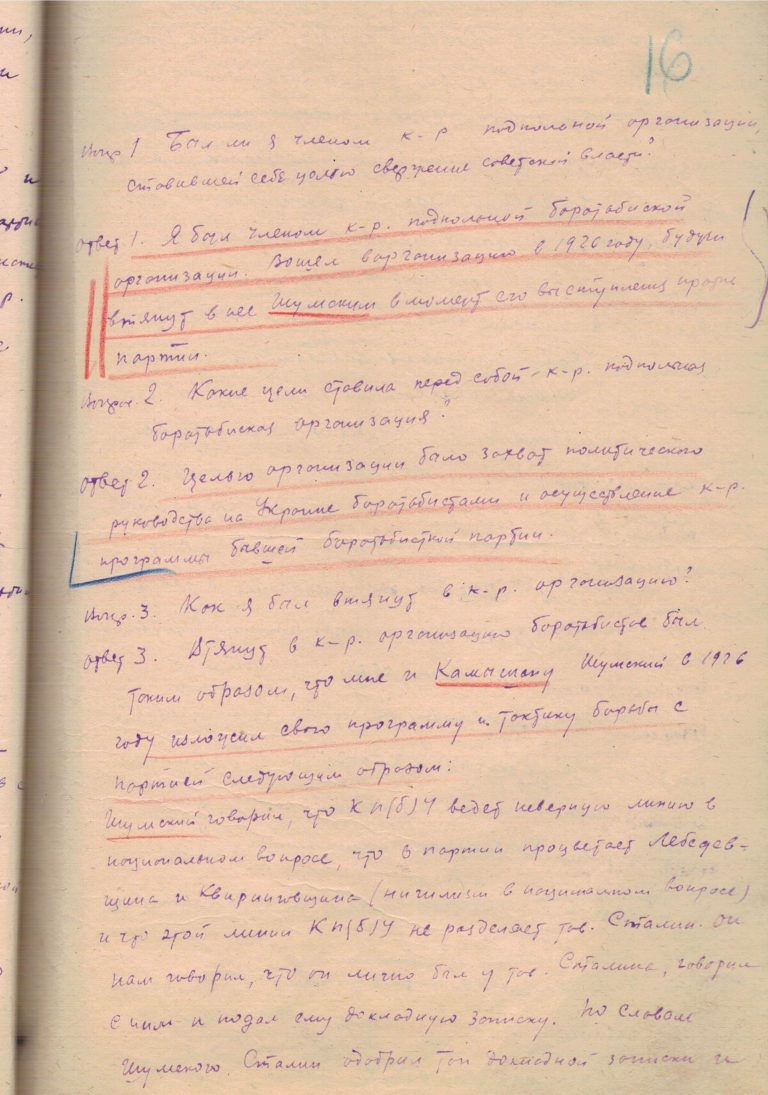 16
Вопр. 1 Был ли я членом к-р подпольной организации,
ставившей себе целью свержение советской власти?
ответ 1. Я был членом к-р. подпольной боротьбиской
организации. Вошел в организацию в 1926 году, будучи
втянут в нее Шумским в момент его выступления против
партии.
Вопрос. 2. Какие цели ставила перед собой к-р. подпольная
боротьбиская организация?
ответ 2. Целью организации было захват политического
руководства на Украине боротьбистами и осуществление к-р.
программы бывшей боротьбисткой партии.
Вопр. 3. Как я был втянут в к-р. организацию?
ответ 3. Втянут в к-р. организацию боротьбистов был
таким образом, что мне и Камышану Шумский в 1926
году изложил свою программу и тактику борьбы с
партией следующим образом:
Шумский говорил, что КП(б)У ведет неверную линию в
национальном вопросе, что в партии процветает Лебедев-
щина и Квиринговщина (нигилизм в национальном вопросе)
и что этой линии КП(б)У не разделяет тов. Сталин. Он
нам говорил, что он лично был у тов. Сталина, говорил
с ним и подал ему докладную записку. По словам
Шумского, Сталин одобрил тон докладной записки и